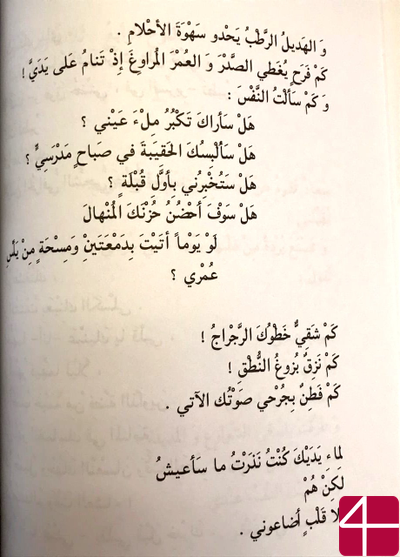 وَ الهَديلُ الرَّطْبُ يَحْدو سَهْوَةَ الأحْلامِ .
كَمْ فَرَحٍ يُغَطي الصَّدْرَ وَ العُمْرَ المُراوغَ إذْ تَنامُ عَلى يَدَيَّ !
وَ كَمْ سَألْتُ النَّفْسَ :
هَلْ سَأراكَ تَكْبُرُ مِلْءَ عَيْني ؟
هَلْ سَألْبِسُكَ الحَقيبَةَ في صَباحٍ مَدْرَسِيٍّ ؟
هَلْ سَتُخْبِرُني بِأوَّلِ قُبْلَةٍ ؟
هَلْ سَوْفَ أحْضُنُ حُزْنَكَ المُنْهالَ
لَوْ يَوْماً أتَيْتَ بِدَمْعَتَيْنِ وَمِسْحَةٍ مِنْ
عُمْري ؟
كَمْ شَقِيٌّ خَطْوُكَ الرَّجْراجُ !
كَمْ نَزِقٌ بُزوغُ النُّطْقِ !
كَمْ فَطِنٌ بِجُرْحي صَوْتُك الآتي .
لماء يَدَيْكَ كُنْتُ نَذَرْتُ ما سَأعيشُ
لَكِنْ هُمْ
قَلْبٍ أضاعوني .